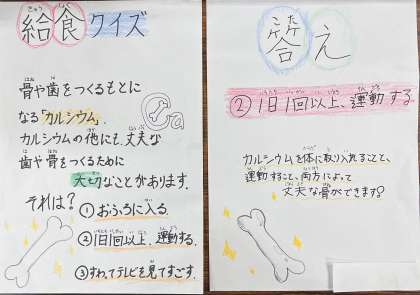 給食クイズ
骨や歯をつくるもとに
なる「カルシウム」.
カルシウムの他にも、丈夫な
歯や骨をつくるために
大切なことがあります.
それは?
①おふろに入る.
②1日1回以上、運動する.
③すわってテレビを見てすごす.
Ca
答え
②1日1回以上、運動する.
カルシウムを体に取り入れること、
運動すること、両方によって
丈夫な骨ができます!